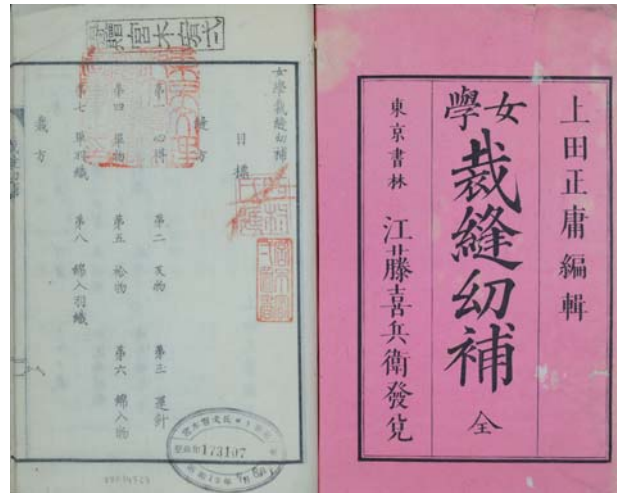 上田正庸編輯
女學
裁縫幼補 全
東京書林 江藤喜兵衛發兌
女學裁縫幼補
目橋
縫方
第一 心得 第二 反物 第三 運針
第四 單物 第五 袷物 第六 綿入物
第七 單羽織 第八 綿入羽織
裁方
173107